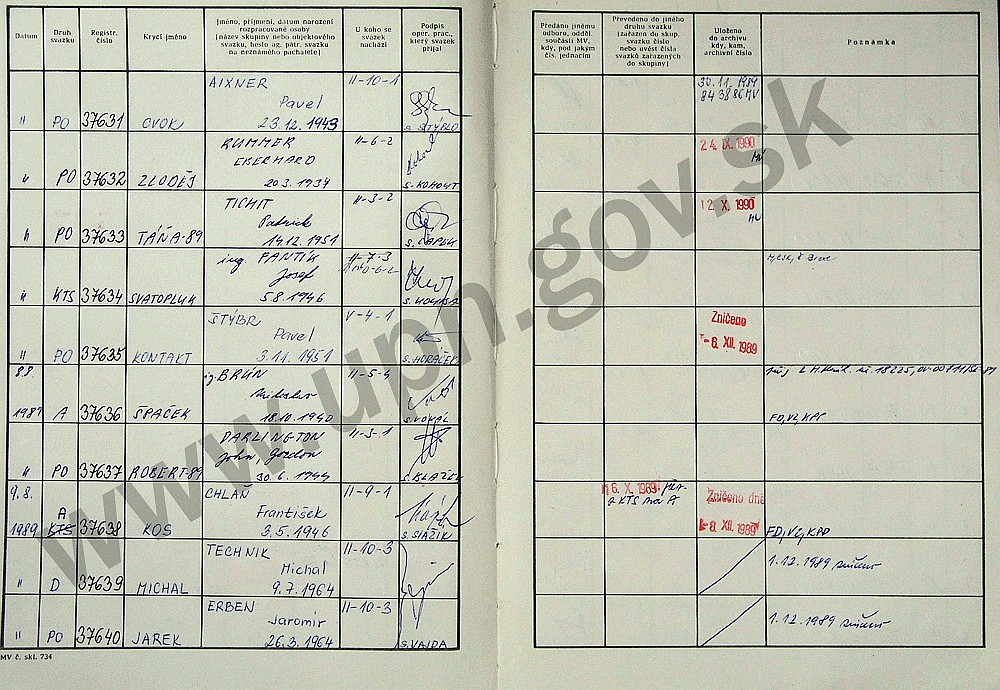 Datum
Druh svazku
Registr. číslo
Krycí jméno
Jméno, příjmení, datum narození
rozpracované osoby
(název skupiny nebo objektového
svazku, heslo ag. pátr. svazku
na neznámého pachatele)
U koho se
svazek
nachází
Podpis
oper. prac.,
který svazek
přijal
Předáno jinému
odboru, odděl.
součásti MV,
kdy, pod jakým
čís. jednacím
Převedeno do jiného
druhu svazku
(zařazen do skup.
svazku číslo
nebo uvést čísla
svazků zařazených
do skupiny)
Uloženo
do archivu
kdy, kam,
archivní číslo
Poznámka
AIXNER II-10-1 30.11.1989
Pavel 843886 MV
" PO 37631 CVOK 23.12.1943 S. STÝBLO
RUMMER II-6-2 24. IX. 1990
EBERHARD MV
" PO 37632 ZLODĚJ 20.3.1934 S. KOHOUT
TICHIT II-3-2 12. X. 1990
Patrick MV
" PO 37633 TÁŇA-89 14.12.1951 S. ČAPEK
ing FANTÍK II-7-3
Josef
" KTS 37634 SVATOPLUK 5.8.1946
ŠTÝBR V-4-1 Zničeno
Pavel -6. XII. 1989
" PO 37635 KONTAKT 3.11.1951 S. HORÁČEK
8.8. ing BRŮN II-5-4
1989 A 37636 ŠPAČEK 18.10.1940 FO, VZ, KPS
DARLINGTON II-3-1
John, Gordon
" PO 37637 ROBERT-89 30.6.1944 S. BLAŽEK
9.8. CHLAN II-9-1 16. X. 1989 Zničeno dne
A František KTS na A -8. XII. 1989
1989 KTS 37638 KOS 3.5.1946 S. SIÁŽIK
TECHNIK II-10-3 1.12.1989 zničeno
Michal
" D 37639 MICHAL 9.7.1964
ERBEN II-10-3 1.12.1989 zničeno
Jaromír
" PO 37640 JAREK 26.3.1964 S. VAJDA
MV č. skl. 734
www.upn.gov.sk